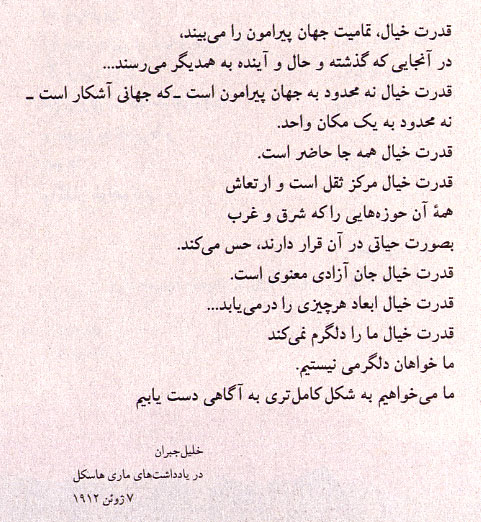 قدرت خیال، تمامیت جهان پیرامون را می‌بیند،
در آنجایی که گذشته و حال و آینده به همدیگر می‌رسند...
قدرت خیال نه محدود به جهان پیرامون است ـ که جهانی آشکار است ـ
نه محدود به یک مکان واحد.
قدرت خیال همه جا حاضر است.
قدرت خیال مرکز ثقل است و ارتعاش
همهٔ آن حوزه‌هایی را که شرق و غرب
بصورت حیاتی در آن قرار دارند، حس می‌کند.
قدرت خیال جان آزادی معنوی است.
قدرت خیال ابعاد هرچیزی را درمی‌یابد...
قدرت خیال ما را دلگرم نمی‌کند
ما خواهان دلگرمی نیستیم.
ما می‌خواهیم به شکل کامل‌تری به آگاهی دست یابیم
خلیل جبران
در یادداشت‌های ماری هاسکل
۷ ژوئن ۱۹۱۲